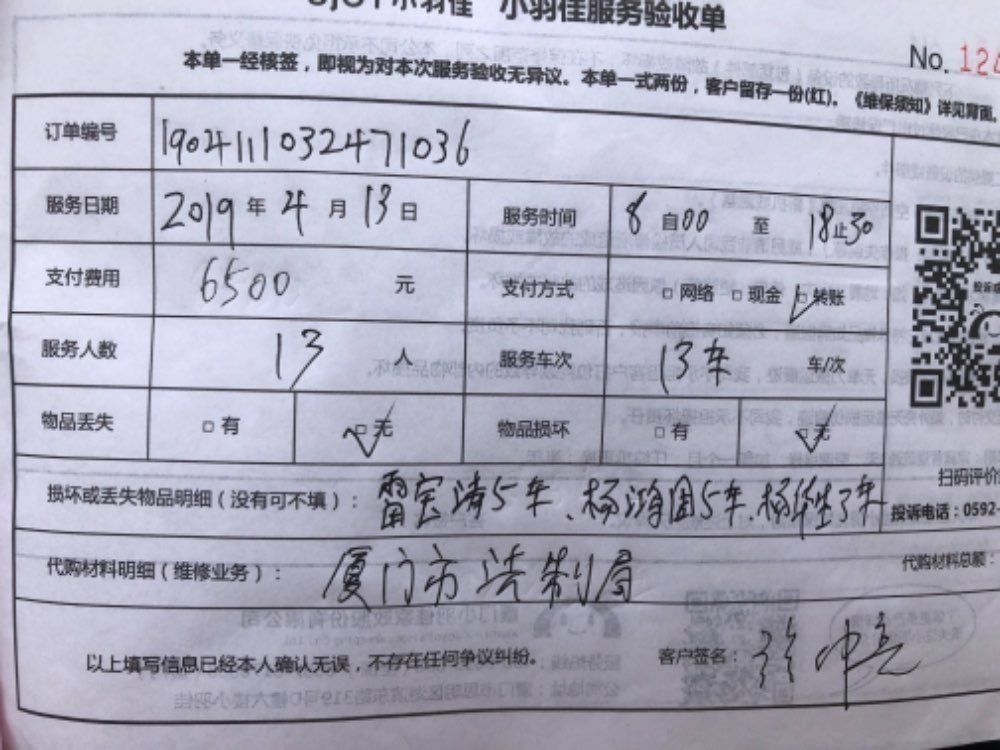 小羽佳 小羽佳服务验收单
No. 124
本单一经核签，即视为对本次服务验收无异议。本单一式两份，客户留存一份(红)。《维保须知》详见背面。
订单编号 1904111032471036
服务日期 2019 年 4 月 13 日 服务时间 8 自00 至 18止30
支付费用 6500 元 支付方式 □网络 □现金 □转账
服务人数 13 人 服务车次 13车 车/次
物品丢失 □有 □无 物品损坏 □有 □无
扫码评价
损坏或丢失物品明细（没有可不填）： 雷宝涛5车、杨鸿图5车、杨华生3车
投诉电话：0592-
代购材料明细（维修业务）： 厦门市法制局
代购材料总额：
以上填写信息已经本人确认无误，不存在任何争议纠纷。 客户签名：